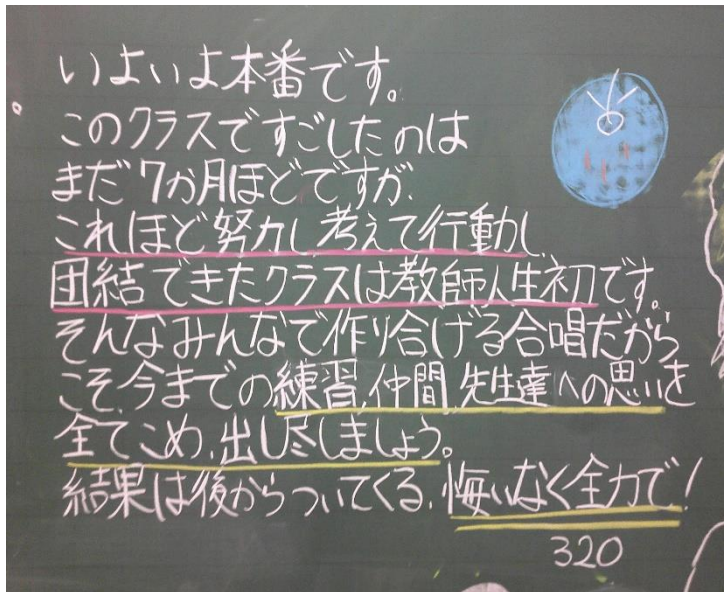 いよいよ本番です。
このクラスですごしたのは
まだ7か月ほどですが、
これほど努力し考えて行動し、
団結できたクラスは教師人生初です。
そんなみんなで作り合げる合唱だから
こそ、今までの練習、仲間、先生達への思いを
全てこめ、出し尽しましょう。
結果は後からついてくる、悔いなく全力で!
320